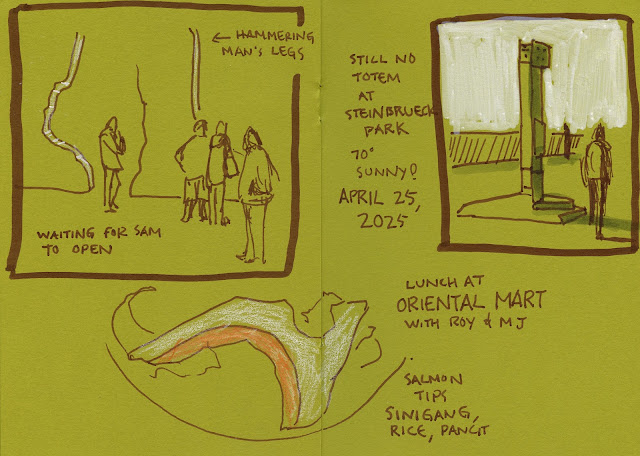 ← HAMMERING
MAN'S LEGS
WAITING FOR SAM
TO OPEN
STILL NO
TOTEM
AT
STEINBRUECK
PARK
70°
SUNNY!
APRIL 25,
2025
LUNCH AT
ORIENTAL MART
WITH ROY & MJ
SALMON
TIPS
SINIGANG,
RICE, PANCIT